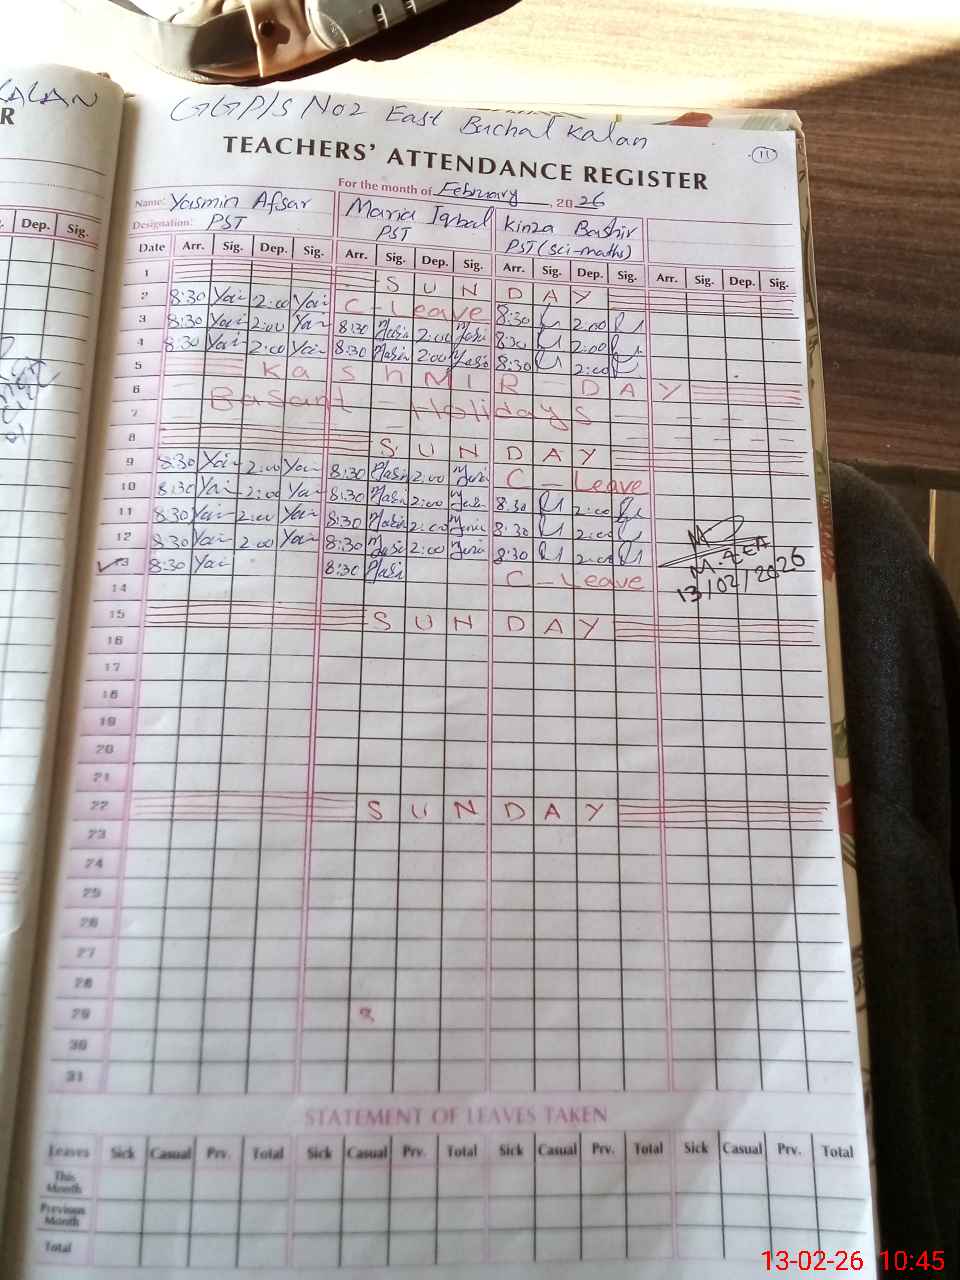 KALAN
R
Dep. Sig.
GGP/S No2 East Buchal Kalan
11
TEACHERS' ATTENDANCE REGISTER
For the month of February, 2026
Name: Yasmin Afsar Maria Iqbal Kinza Bashir
Designation: PST PST PST (sci-maths)
Date Arr. Sig. Dep. Sig. Arr. Sig. Dep. Sig. Arr. Sig. Dep. Sig. Arr. Sig. Dep. Sig.
1 SUNDAY
2 8:30 2:00 C-Leave 8:30 2:00
3 8:30 2:00 8:30 2:00 8:30 2:00
4 8:30 2:00 8:30 2:00 8:30 2:00
5 KashMIR DAY
6 Basant - Holidays
7
8 SUNDAY
9 8:30 2:00 8:30 2:00 C-Leave
10 8:30 2:00 8:30 2:00 8:30 2:00
11 8:30 2:00 8:30 2:00 8:30 2:00
12 8:30 2:00 8:30 2:00 8:30 2:00
13 8:30 8:30 C-Leave
M.EEA
13/02/2026
14
15 SUNDAY
16
17
18
19
20
21
22 SUNDAY
23
24
25
26
27
28
29
30
31
STATEMENT OF LEAVES TAKEN
Leaves Sick Casual Prv. Total Sick Casual Prv. Total Sick Casual Prv. Total Sick Casual Prv. Total
This Month
Previous Month
Total
13-02-26 10:45